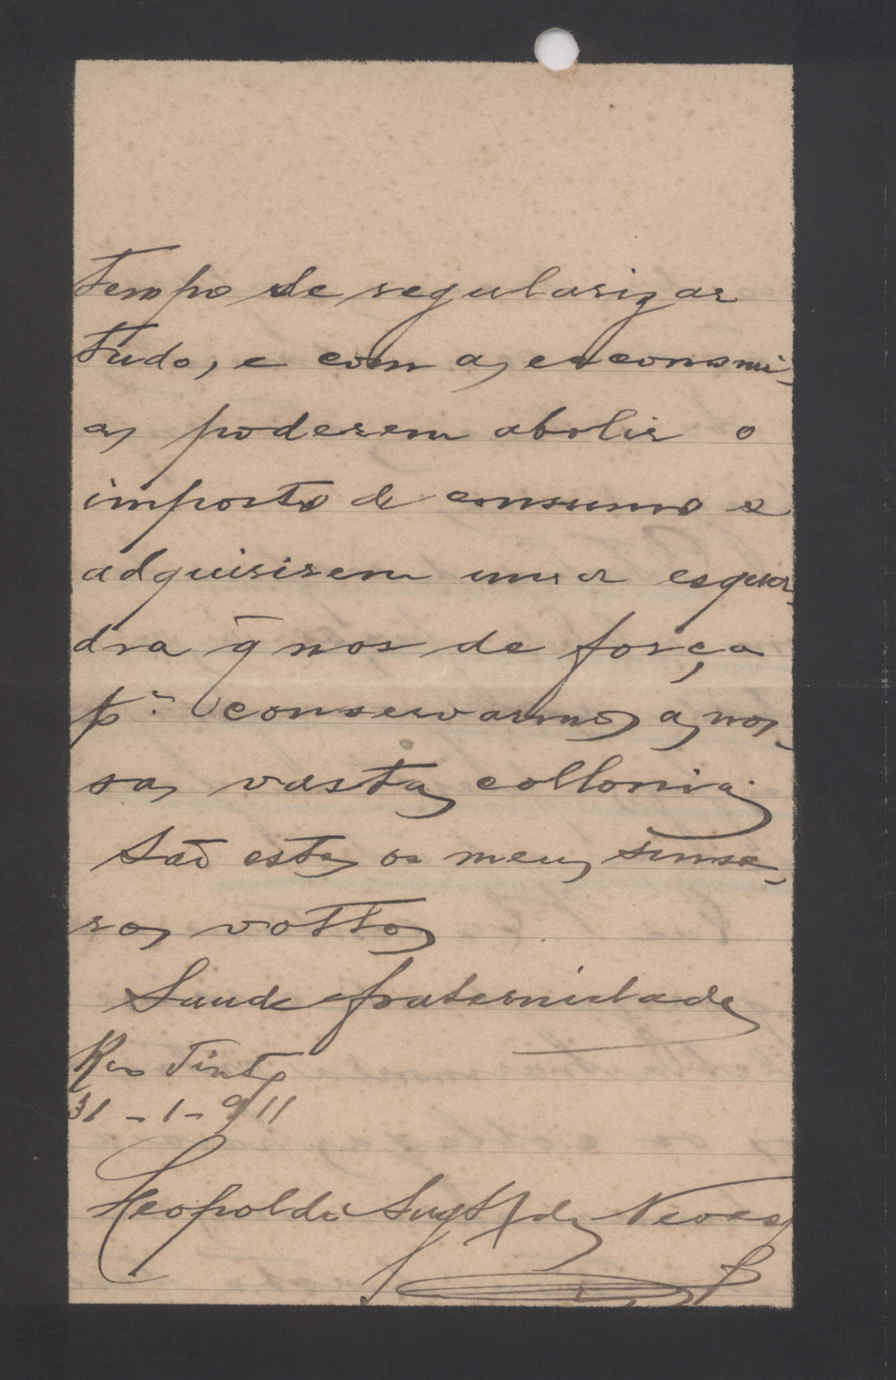 tempo de regularizar
tudo, e com as economi-
as poderem abolir o
imposto de consumo e
adquirirem uma esqua-
dra q̃ nos de força
pª conservarmos as nos-
sas vastas collonias
São estes os meus sinse-
ros vottos
Saude e fraternidade
Rio Tinto
31-1-911
Leopoldo das Neves